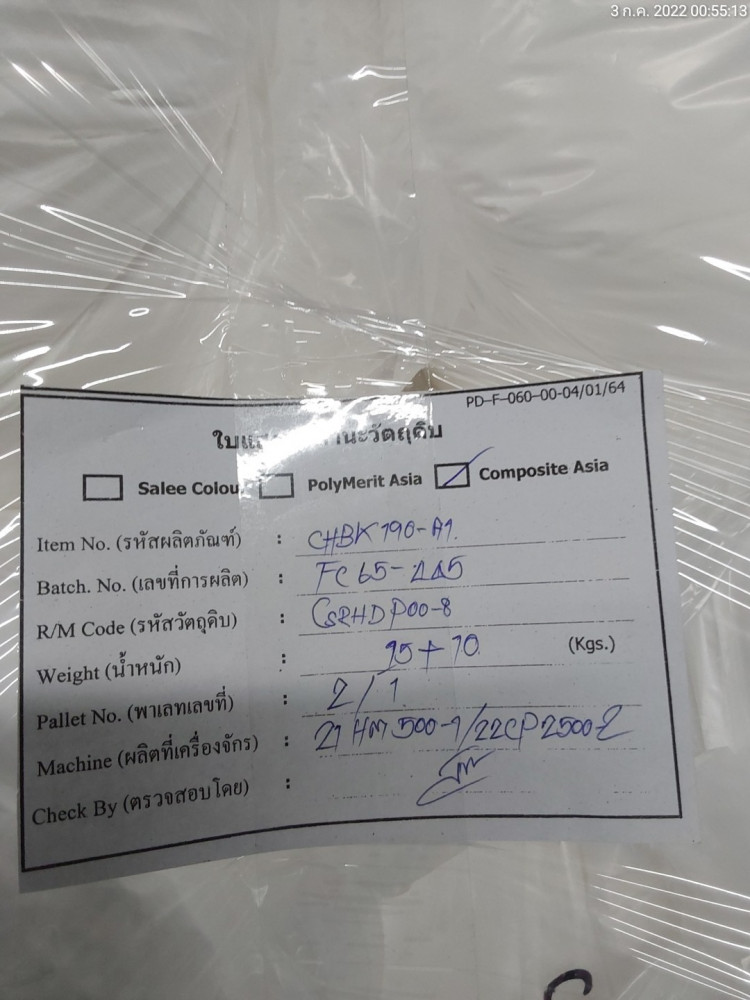 3 ก.ค. 2022 00:55:13
PD-F-060-00-04/01/64
นะวัตถุดิบ
Salee Colou PolyMerit Asia Composite Asia
Item No. (รหัสผลิตภัณฑ์) : CHBK190-A1.
Batch. No. (เลขที่การผลิต) : FC65-225
R/M Code (รหัสวัตถุดิบ) : CSRHDP00-8
Weight (น้ำหนัก) : 95+10 (Kgs.)
Pallet No. (พาเลทเลขที่) : 2/1
Machine (ผลิตที่เครื่องจักร) : 21HM500-1/22CP2500Z
Check By (ตรวจสอบโดย) :